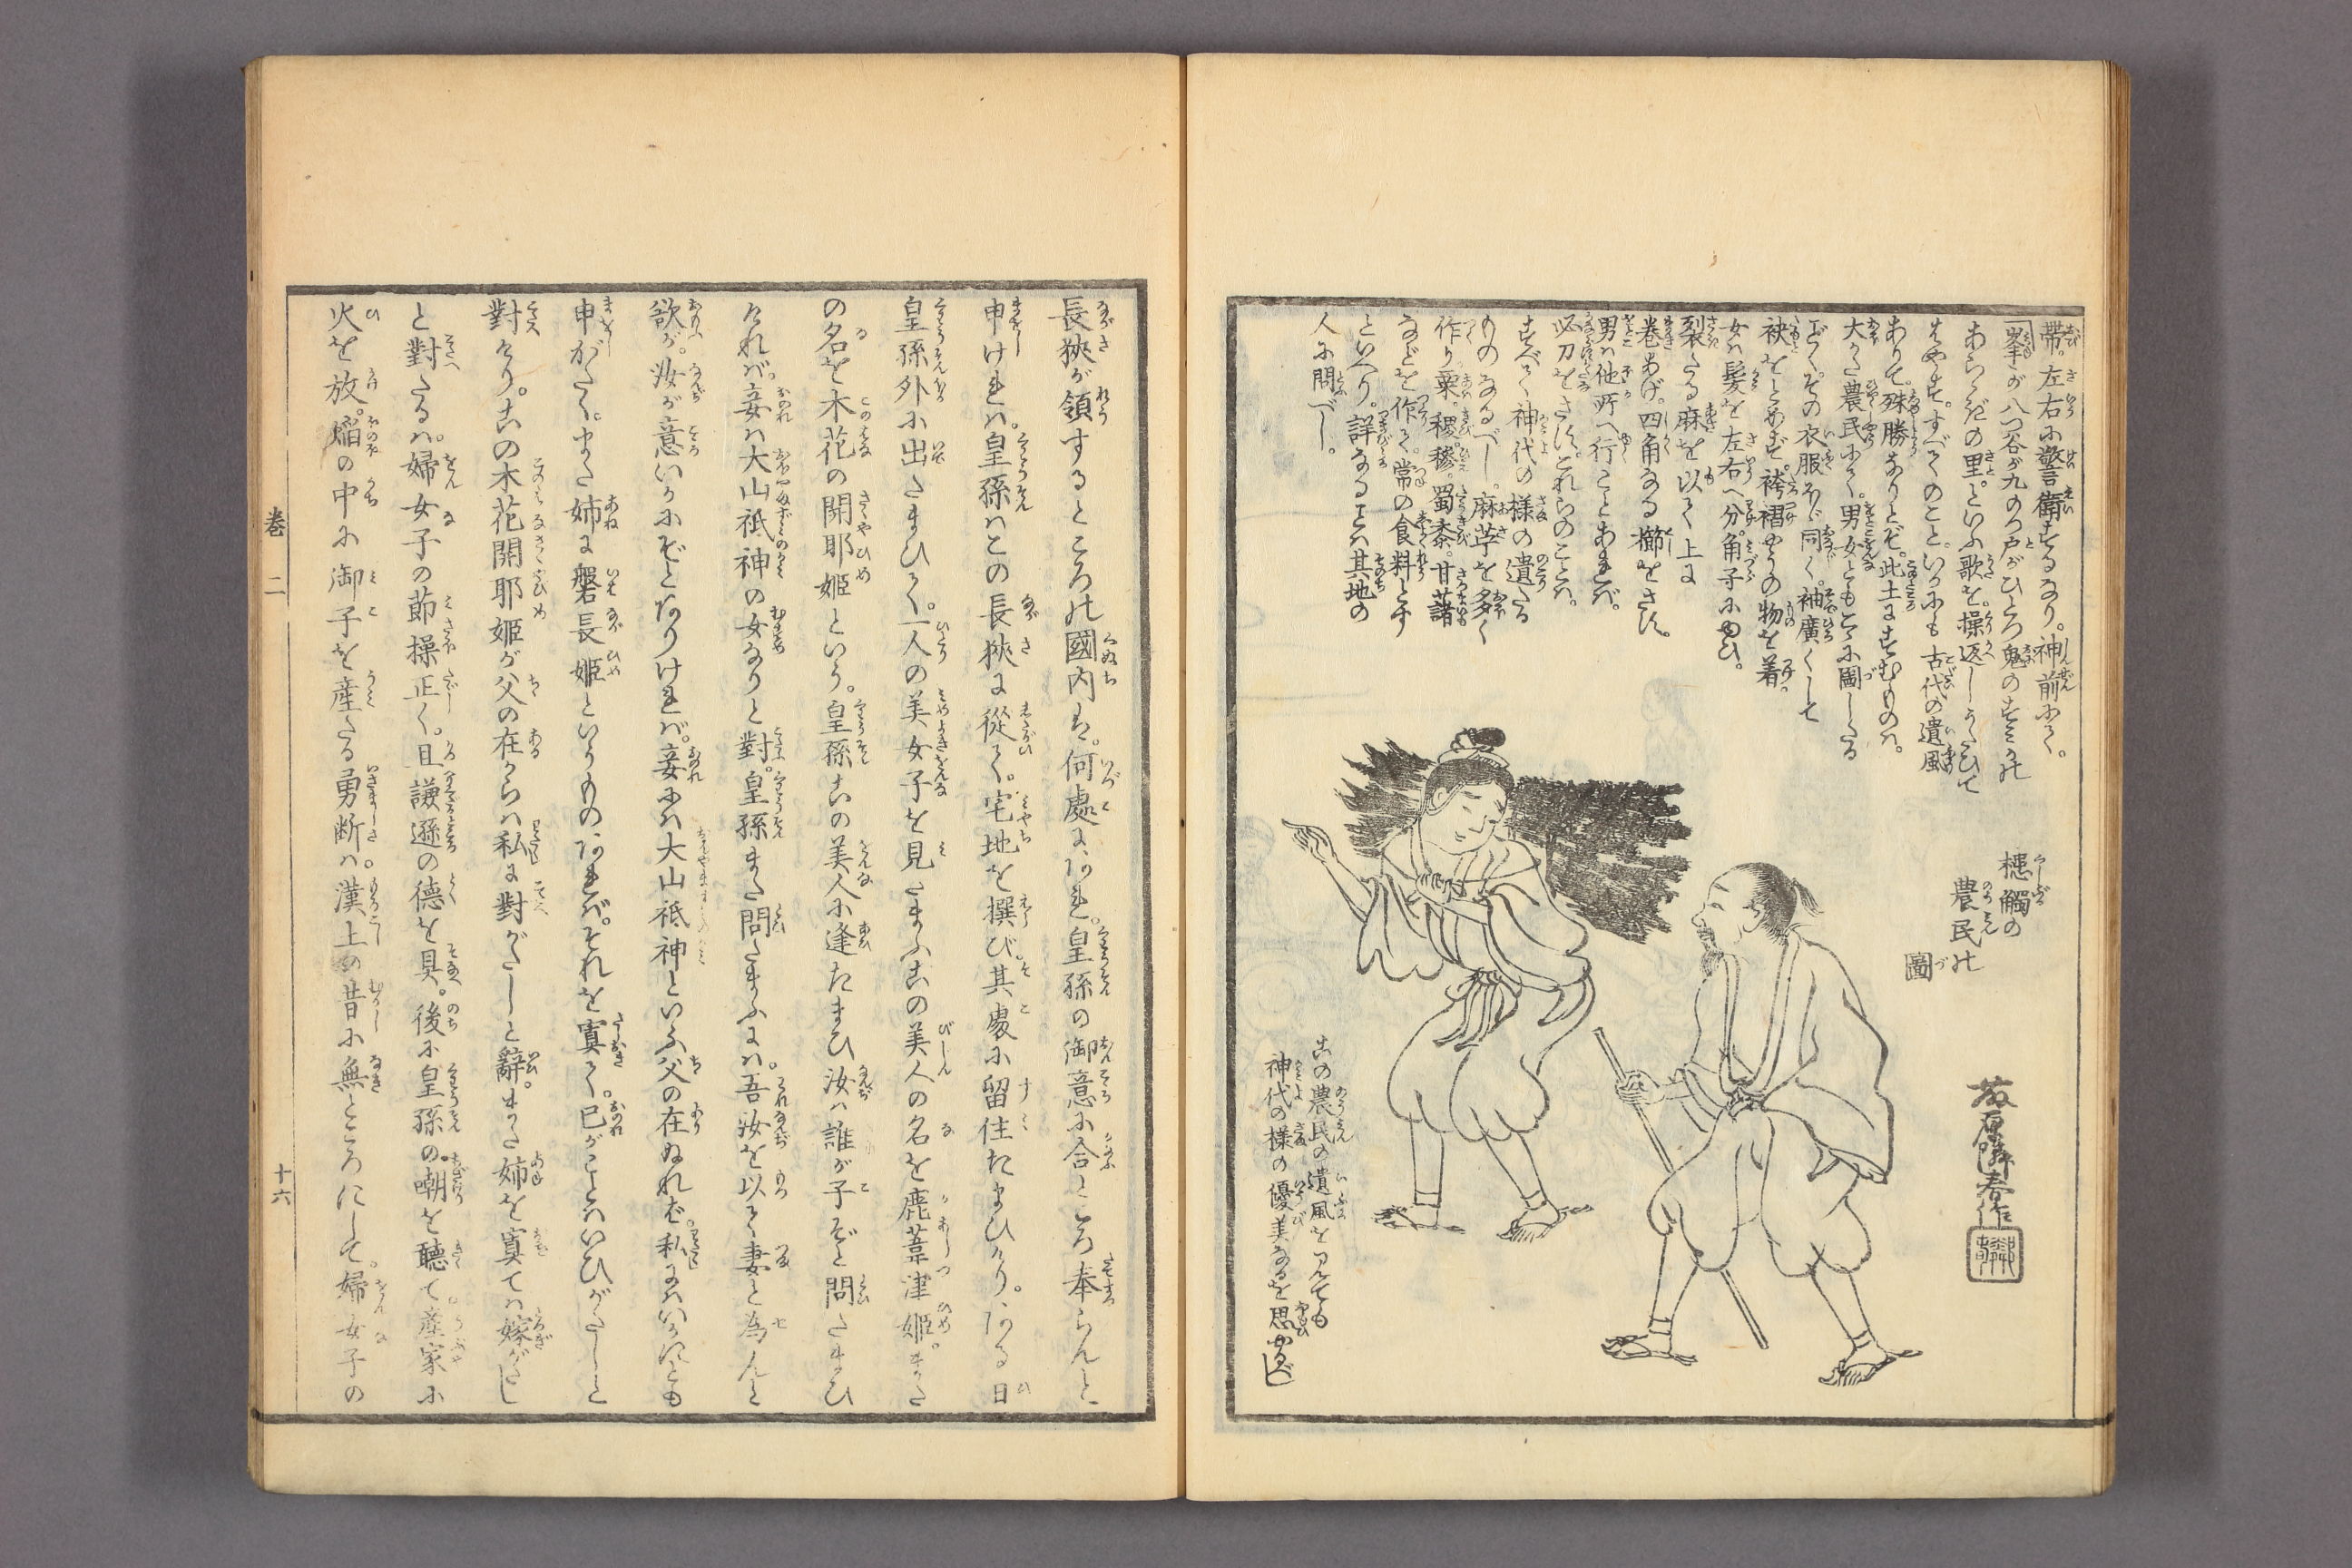 帶。左右に警衛するなり。神前にて。
一峯が八つ谷が九つ戸がひとつ鬼のすミかハ
あらゝぎの里。といふ歌を。操返しうたひて
はやす。すべてのこと。いかにも古代の遺風
ありて。殊勝なりとぞ。此土にすむものハ。
大かた農民にて。男女ともこゝに圖したる
ごとく。その衣服ほゞ同じく。袖廣くして
袂をとめず。袴褶やうの物を着。
女ハ髪を左右へ分。角子にゆひ。
裂たる麻を以て上に
巻あげ。四角なる櫛をさす。
男ハ他所へ行ことあれバ。
必刀をさす。これらのことハ。
すべて神代の様の遺たる
ものなるべし。麻苧を多く
作り粟。稷。穇。蜀黍。甘藷
などを作て。常の食料とす
といへり。詳なることハ其地の
人に問べし。
槵觸の
農民の
圖
藤原隣春作
この農民の遺風を見ても
神代の様の優美なるを思ひやるべし
長狹が領するところの國内は。何處にあれ。皇孫の御意に合ところ奉らんと
申けれハ。皇孫ハこの長狹に從て。宅地を撰び其處に留住たまひけり。ある日
皇孫外に出たまひて。一人の美女子を見たまふこの美人の名を鹿葦津姫。また
の名を木花の開耶姫といふ。皇孫この美人に逢たまひ汝ハ誰が子ぞと問たまひ
けれバ。妾ハ大山祇神の女なりと對。皇孫また問たまふにハ。吾汝を以て妻と為んと
欲が。汝が意いかにぞとありけれバ。妾にハ大山祇神といふ父の在ぬれば。私にハいかにとも
申がたく。また姉に磐長姫といふものあれバ。それを寘て。己がことハいひがたしと
對けり。この木花開耶姫が父の在からハ私に對がたしと辭。また姉を寘てハ嫁がたし
と對たるハ。婦女子の節操正く。且謙遜の德を具。後に皇孫の。嘲を聽て產家に
火を放。焔の中に御子を産たる勇断ハ。漢上の昔に無ところにして。婦女子の
卷二
十六